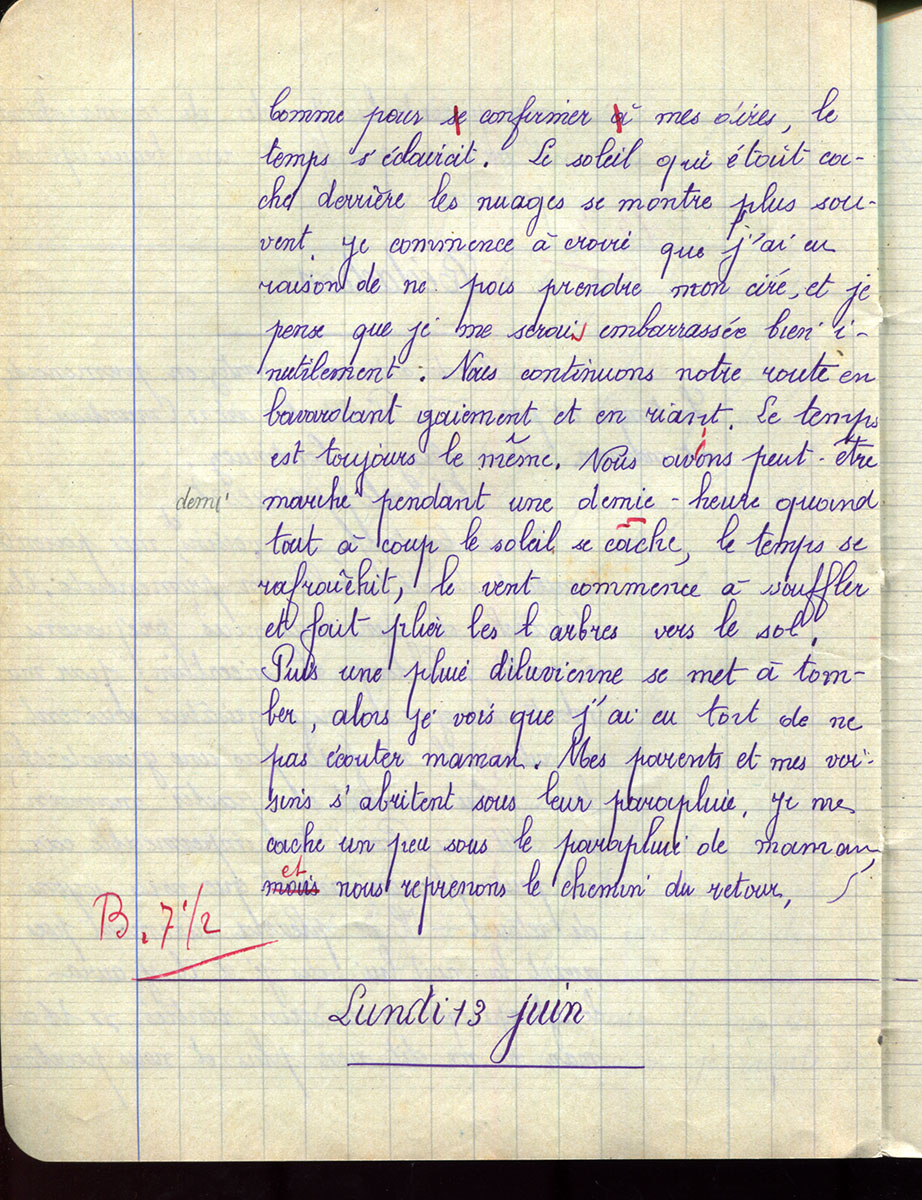 Comme pour se confirmer à mes dires, le
temps s'éclaircit. Le soleil qui était ca-
ché derrière les nuages se montre plus sou-
vent. Je commence à croire que j'ai eu
raison de ne pas prendre mon ciré, et je
pense que je me serais embarrassée bien i-
nutilement. Nous continuons notre route en
bavardant gaiement et en riant. Le temps
est toujours le même. Nous avions peut-être
demi
marché pendant une demie-heure quand
tout à coup le soleil se cache, le temps se
rafraîchit, le vent commence à souffler
et fait plier les t arbres vers le sol.
Puis une pluie diluvienne se met à tom-
ber, alors je vois que j'ai eu tort de ne
pas écouter maman. Mes parents et mes voi-
sins s'abritent sous leur parapluie. Je me
cache un peu sous le parapluie de maman,
et
mais nous reprenons le chemin du retour,
B. 7 1/2
Lundi 13 juin